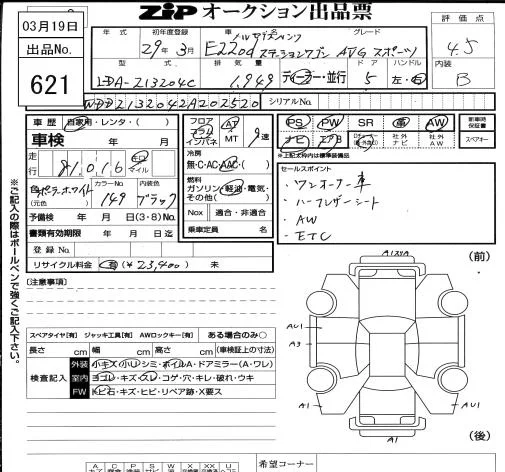 03月19日
出品No.
621
ZIP オークション出品票
評価点
4.5
内装
B
年式
初年度登録
29年3月
車名
メルセデスベンツ
E220d ステーションワゴン AVG スポーツ
グレード
型式
LDA-213204C
排気量
1,949
ディーラー・並行
ドア
5
ハンドル
左・右
WDD2132042A202520
シリアルNo.
車歴
自家用・レンタ・( )
車検
年 月
走行
81,016
キロ
マイル
色
(元色)
ポーラーホワイト
カラーNo.
149
内装色
ブラック
予備検 年 月 日(3・8)No.
書類有効期限 年 月 日迄
登録No.
リサイクル料金 有(¥23,400) 未
フロア
コラム
インパネ
AT
MT
9速
冷房
無・C・AC・AAC・( )
燃料
ガソリン・軽油・電気・
その他( )
Nox 適合・非適合
乗車定員 名
PS PW SR 革 AW
ナビ エアB 社外ナビ 社外AW
新車時保証書
スペアキー
※上記太枠内は標準装備品
セールスポイント
・ワンオーナー車
・ハーフレザーシート
・AW
・ETC
※ご記入の際はボールペンで強くご記入下さい。
(注意事項)
スペアタイヤ[有] ジャッキ工具[有] AWロックキー[有] ある場合のみ○
長さ cm 幅 cm 高さ cm (車検証上の寸法)
検査記入
外装 小キズ・小リシミ・ホイルA・ドアミラー(A・ワレ)
室内 ヨゴレ・キズ・スレ・コゲ・穴・キレ・破れ・ウキ
FW トビ石・キズ・ヒビ・リペア跡・X要ス
(前)
AU1
A3
A1
AU1
A1
(後)
A C P S B W X XX U
希望コーナー